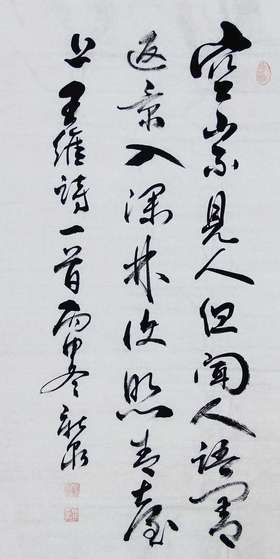 空山不見人但聞人語響
返景入深林復照青苔
上王維詩一首丙申冬